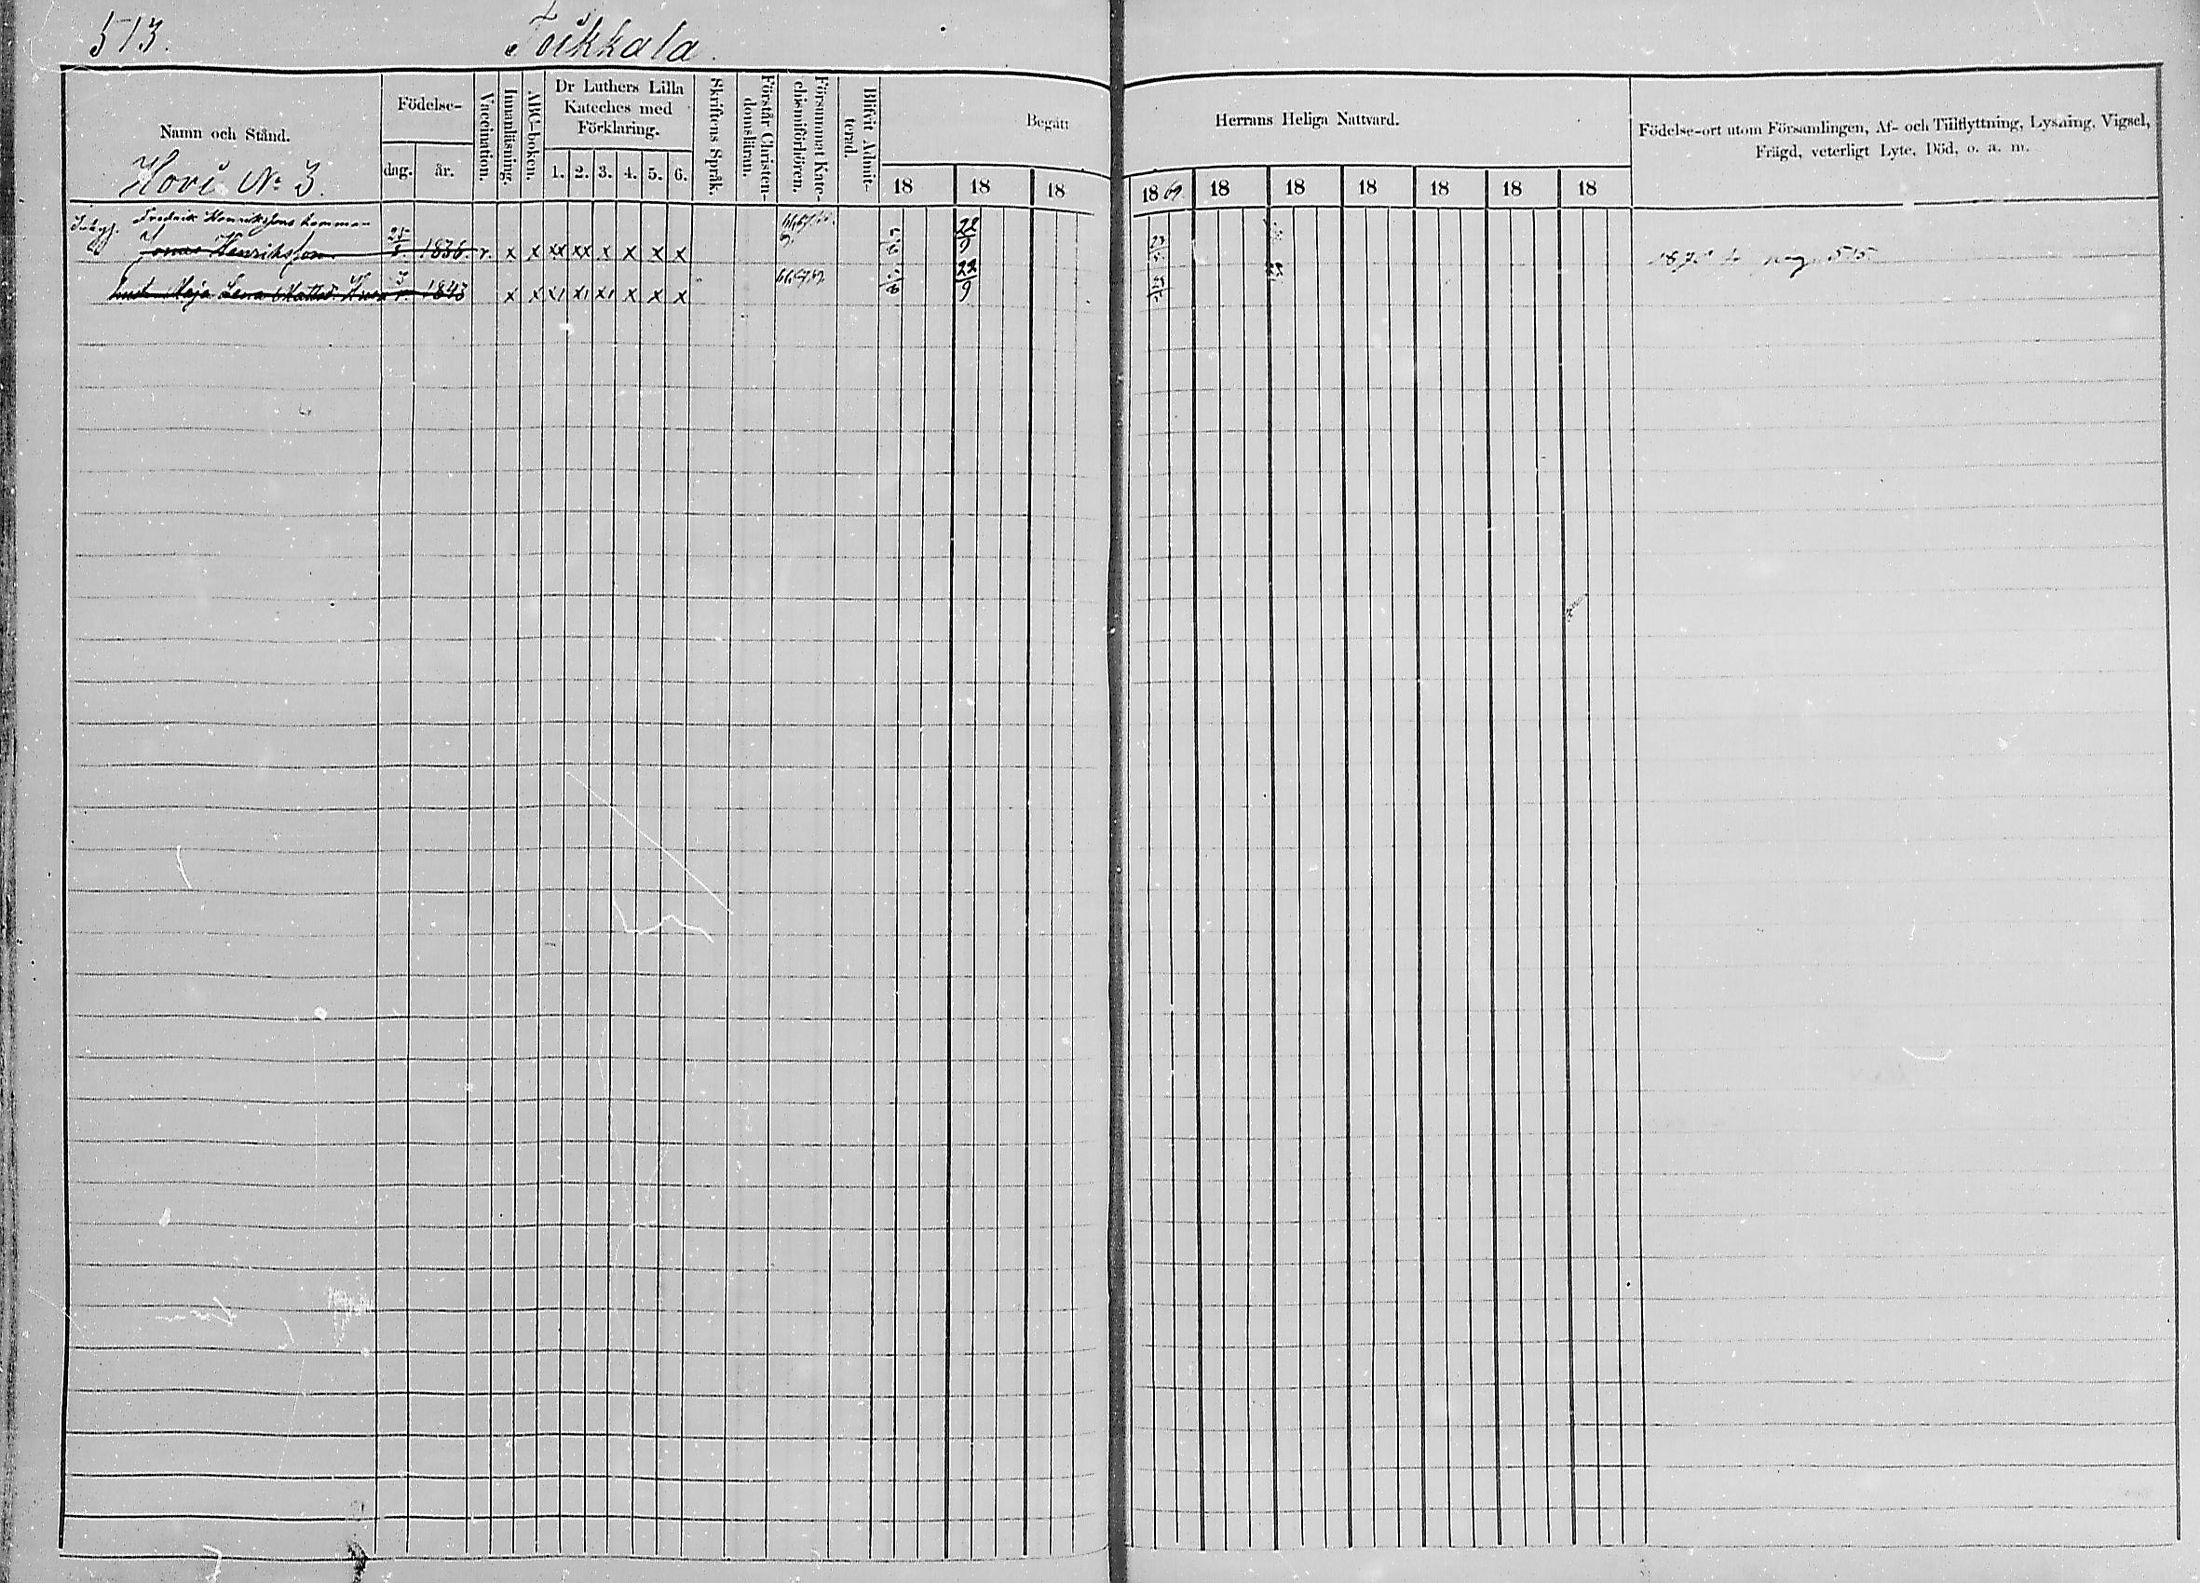 513. Toikkala.
Namn och Stånd.
Hovi No 3.
Födelse-
dag. år.
Vaccination.
Innanläsning.
ABC-boken.
Dr Luthers Lilla
Kateches med
Förklaring.
1. 2. 3. 4. 5. 6.
Skriftens Språk.
Förstår Christen-
domsläran.
Försummat Kate-
chismiförhören.
Blifvit Admit-
terad.
Begått Herrans Heliga Nattvard.
18 18 18 1869. 18 18 18 18 18 18
Födelse-ort utom Församlingen, Af- och Tillflyttning, Lysning, Vigsel,
Frägd, veterligt Lyte, Död, o. a. m.
Fredrik Henrikssons
Jonas Henriksson 1836. v. x x xx xx x x x x 22/9
Maja Lena Mattsd. 1843 x x x x x x 22/9
pag. 515